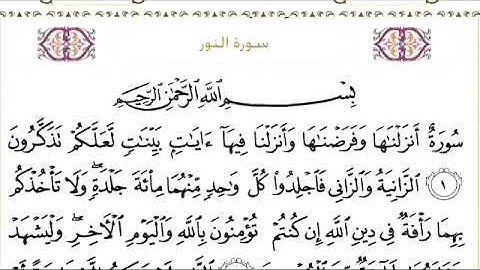 سورة النور
بِسْمِ ٱللَّهِ ٱلرَّحْمَٰنِ ٱلرَّحِيمِ
سُورَةٌ أَنزَلْنَٰهَا وَفَرَضْنَٰهَا وَأَنزَلْنَا فِيهَآ ءَايَٰتٍۭ بَيِّنَٰتٍ لَّعَلَّكُمْ تَذَكَّرُونَ
١ ٱلزَّانِيَةُ وَٱلزَّانِى فَٱجْلِدُوا۟ كُلَّ وَٰحِدٍ مِّنْهُمَا مِا۟ئَةَ جَلْدَةٍ ۖ وَلَا تَأْخُذْكُم
بِهِمَا رَأْفَةٌ فِى دِينِ ٱللَّهِ إِن كُنتُمْ تُؤْمِنُونَ بِٱللَّهِ وَٱلْيَوْمِ ٱلْـَٔاخِرِ ۖ وَلْيَشْهَدْ